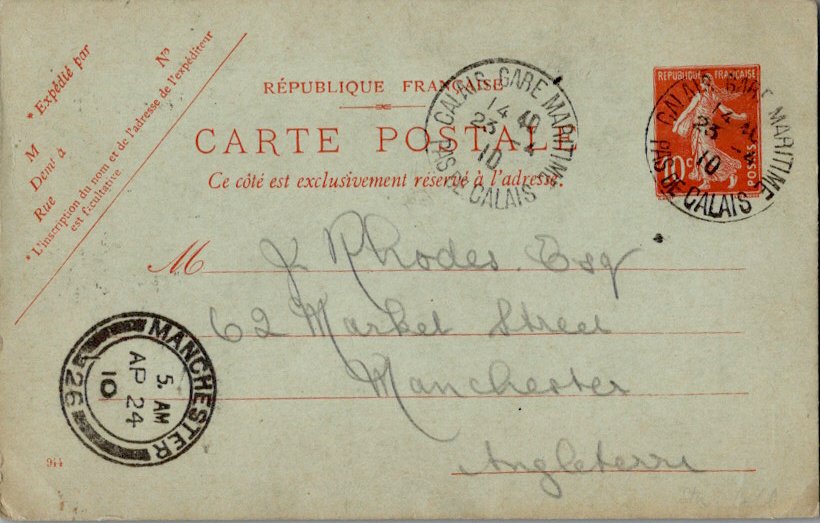 * Expédié par
M
Nº
Demt à
Rue
* L'inscription du nom et de l'adresse de l'expéditeur
est facultative.
RÉPUBLIQUE FRANÇAISE
CARTE POSTALE
Ce côté est exclusivement réservé à l'adresse.
CALAIS GARE MARITIME
14
23 - 4
10
PAS DE CALAIS
REPUBLIQUE FRANÇAISE
10c
POSTES
CALAIS GARE MARITIME
14
23 - 4
10
PAS DE CALAIS
M J Rhodes. Esq
62 Market Street
Manchester
Angleterre
MANCHESTER
5. AM
AP 24
10
526
944